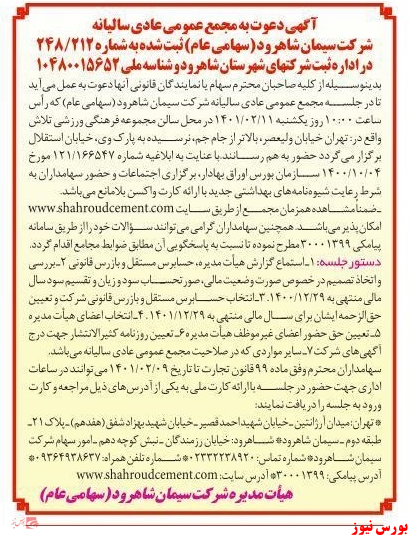 آگهی دعوت به مجمع عمومی عادی سالیانه
شرکت سیمان شاهرود (سهامی عام) ثبت شده به شماره ۲۴۸/۲۱۲
در اداره ثبت شرکتهای شهرستان شاهرود و شناسه ملی ۱۰۴۸۰۰۱۵۶۵۲
بدینوسیله از کلیه صاحبان محترم سهام یا نمایندگان قانونی آنها دعوت به عمل می‌آید
تا در جلسه مجمع عمومی عادی سالیانه شرکت سیمان شاهرود (سهامی عام) که رأس
ساعت ۱۰:۰۰ روز یکشنبه ۱۴۰۱/۰۲/۱۱ در محل سالن مجموعه فرهنگی ورزشی تلاش
واقع در: تهران خیابان ولیعصر، بالاتر از جام جم، نرسیده به پارک وی، خیابان استقلال
برگزار می‌گردد حضور به هم رسانند. با عنایت به ابلاغیه شماره ۱۲۱/۱۶۶۵۴۷ مورخ
۱۴۰۰/۱۰/۰۴ سازمان بورس اوراق بهادار، برگزاری اجتماعات و حضور سهامداران به
شرط رعایت شیوه‌نامه‌های بهداشتی جدید با ارائه کارت واکسن بلامانع می‌باشد.
ـ ضمناً مشاهده همزمان مجمع از طریق سایت www.shahroudcement.com
امکان پذیر می‌باشد. همچنین سهامداران گرامی می‌توانند سؤالات خود را از طریق سامانه
پیامکی ۳۰۰۰۱۳۹۹ مطرح نموده تا نسبت به پاسخگویی آن مطابق ضوابط مجامع اقدام گردد.
دستور جلسه: ۱ـ استماع گزارش هیأت مدیره، حسابرس مستقل و بازرس قانونی ۲ـ بررسی
و اتخاذ تصمیم در خصوص صورت وضعیت مالی، صورتحساب سود و زیان و تقسیم سود سال
مالی منتهی به ۱۴۰۰/۱۲/۲۹ ۳ـ انتخاب حسابرس مستقل و بازرس قانونی شرکت و تعیین
حق‌الزحمه ایشان برای سال مالی منتهی به ۱۴۰۱/۱۲/۲۹ ۴ـ انتخاب اعضای هیأت مدیره
۵ـ تعیین حق حضور اعضای غیرموظف هیأت مدیره ۶ـ تعیین روزنامه کثیرالانتشار جهت درج
آگهی‌های شرکت ۷ـ سایر مواردی که در صلاحیت مجمع عمومی عادی سالیانه می‌باشد.
سهامداران محترم وفق ماده ۹۹ قانون تجارت تا تاریخ ۱۴۰۱/۰۲/۰۹ می‌توانند در ساعات
اداری جهت حضور در جلسه با ارائه کارت ملی به یکی از آدرس‌های ذیل مراجعه و کارت
ورود به جلسه را دریافت نمایند:
* تهران: میدان آرژانتین ـ خیابان شهید احمد قصیر ـ خیابان شهید بهزاد شفق (هفدهم) ـ پلاک ۲۱ ـ
طبقه دوم ـ سیمان شاهرود * شاهرود: خیابان رزمندگان ـ نبش کوچه دهم ـ امور سهام شرکت
سیمان شاهرود * شماره تماس: ۰۲۳۳۲۲۳۸۹۲۰ * شماره تلفن همراه: ۰۹۳۶۴۹۳۸۶۳۷ *
آدرس پیامکی: ۳۰۰۰۱۳۹۹ * آدرس سایت: www.shahroudcement.com
هیأت مدیره شرکت سیمان شاهرود (سهامی عام)
بورس نیوز